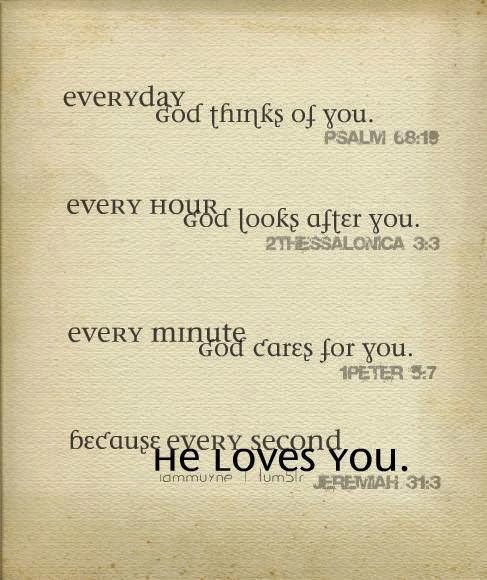 everyday
God thinks of you.
PSALM 68:19
every hour
God looks after you.
2THESSALONICA 3:3
every minute
God cares for you.
1PETER 5:7
because every second
He Loves You.
iammuyne | tumblr
JEREMIAH 31:3